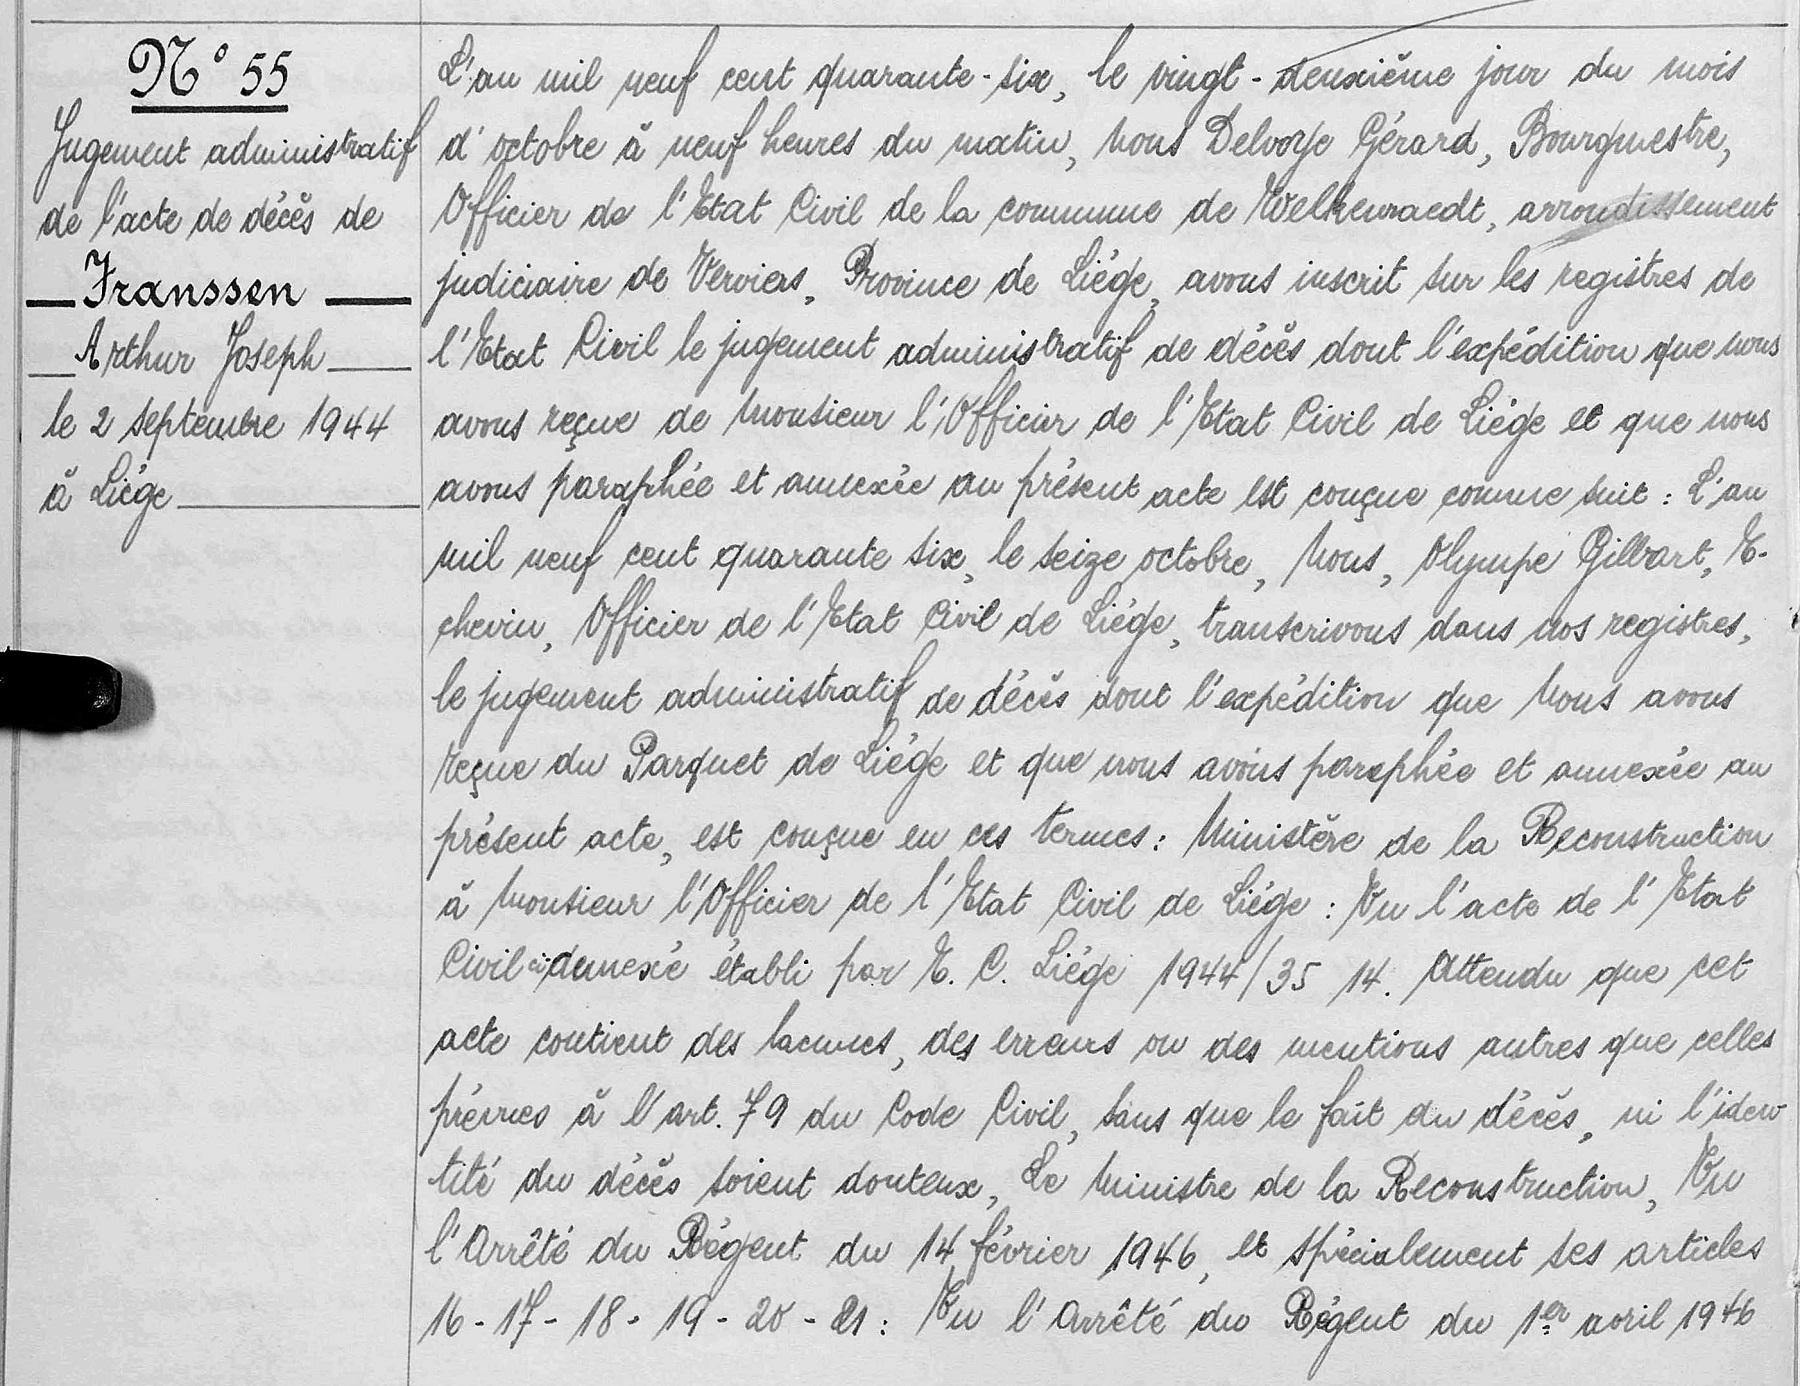 N° 55
Jugement administratif
de l'acte de décès de
Franssen
Arthur Joseph
le 2 septembre 1944
à Liége
L'an mil neuf cent quarante-six, le vingt-deuxième jour du mois
d'octobre à neuf heures du matin, Nous Delvoye Gérard, Bourgmestre,
Officier de l'Etat Civil de la commune de Welkenraedt, arrondissement
judiciaire de Verviers, Province de Liége, avons inscrit sur les registres de
l'Etat Civil le jugement administratif de décès dont l'expédition que nous
avons reçue de Monsieur l'Officier de l'Etat Civil de Liége et que nous
avons paraphée et annexée au présent acte est conçue comme suit : L'an
mil neuf cent quarante six, le seize octobre, Nous, Olympe Gilbart, E-
chevin, Officier de l'Etat Civil de Liége, transcrivons dans nos registres,
le jugement administratif de décès dont l'expédition que Nous avons
reçue du Parquet de Liége et que nous avons paraphée et annexée au
présent acte, est conçue en ces termes : Ministère de la Reconstruction
à Monsieur l'Officier de l'Etat Civil de Liége : Vu l'acte de l'Etat
Civil ci annexé établi par E. C. Liége 1944/35 14. Attendu que cet
acte contient des lacunes, des erreurs ou des mentions autres que celles
prévues à l'art. 79 du Code Civil, sans que le fait du décès, ni l'iden
tité du décès soient douteux, Le Ministre de la Reconstruction, Vu
l'Arrêté du Régent du 14 février 1946, et spécialement ses articles
16 - 17 - 18 - 19 - 20 - 21 : Vu l'Arrêté du Régent du 1er avril 1946